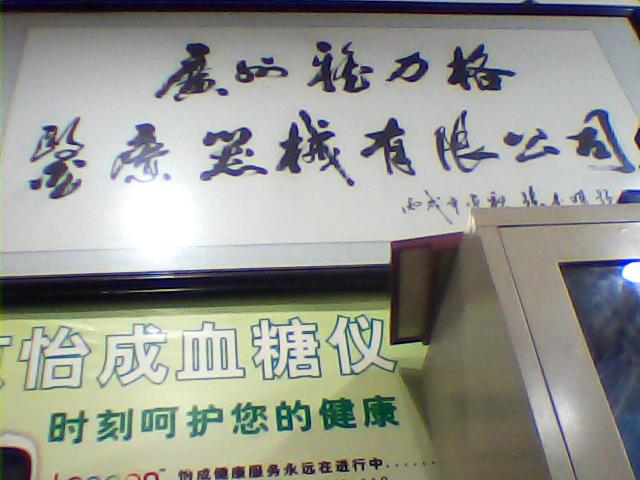 廣州雅力格
醫療器械有限公司
怡成血糖仪
时刻呵护您的健康
怡成健康服务永远在进行中......